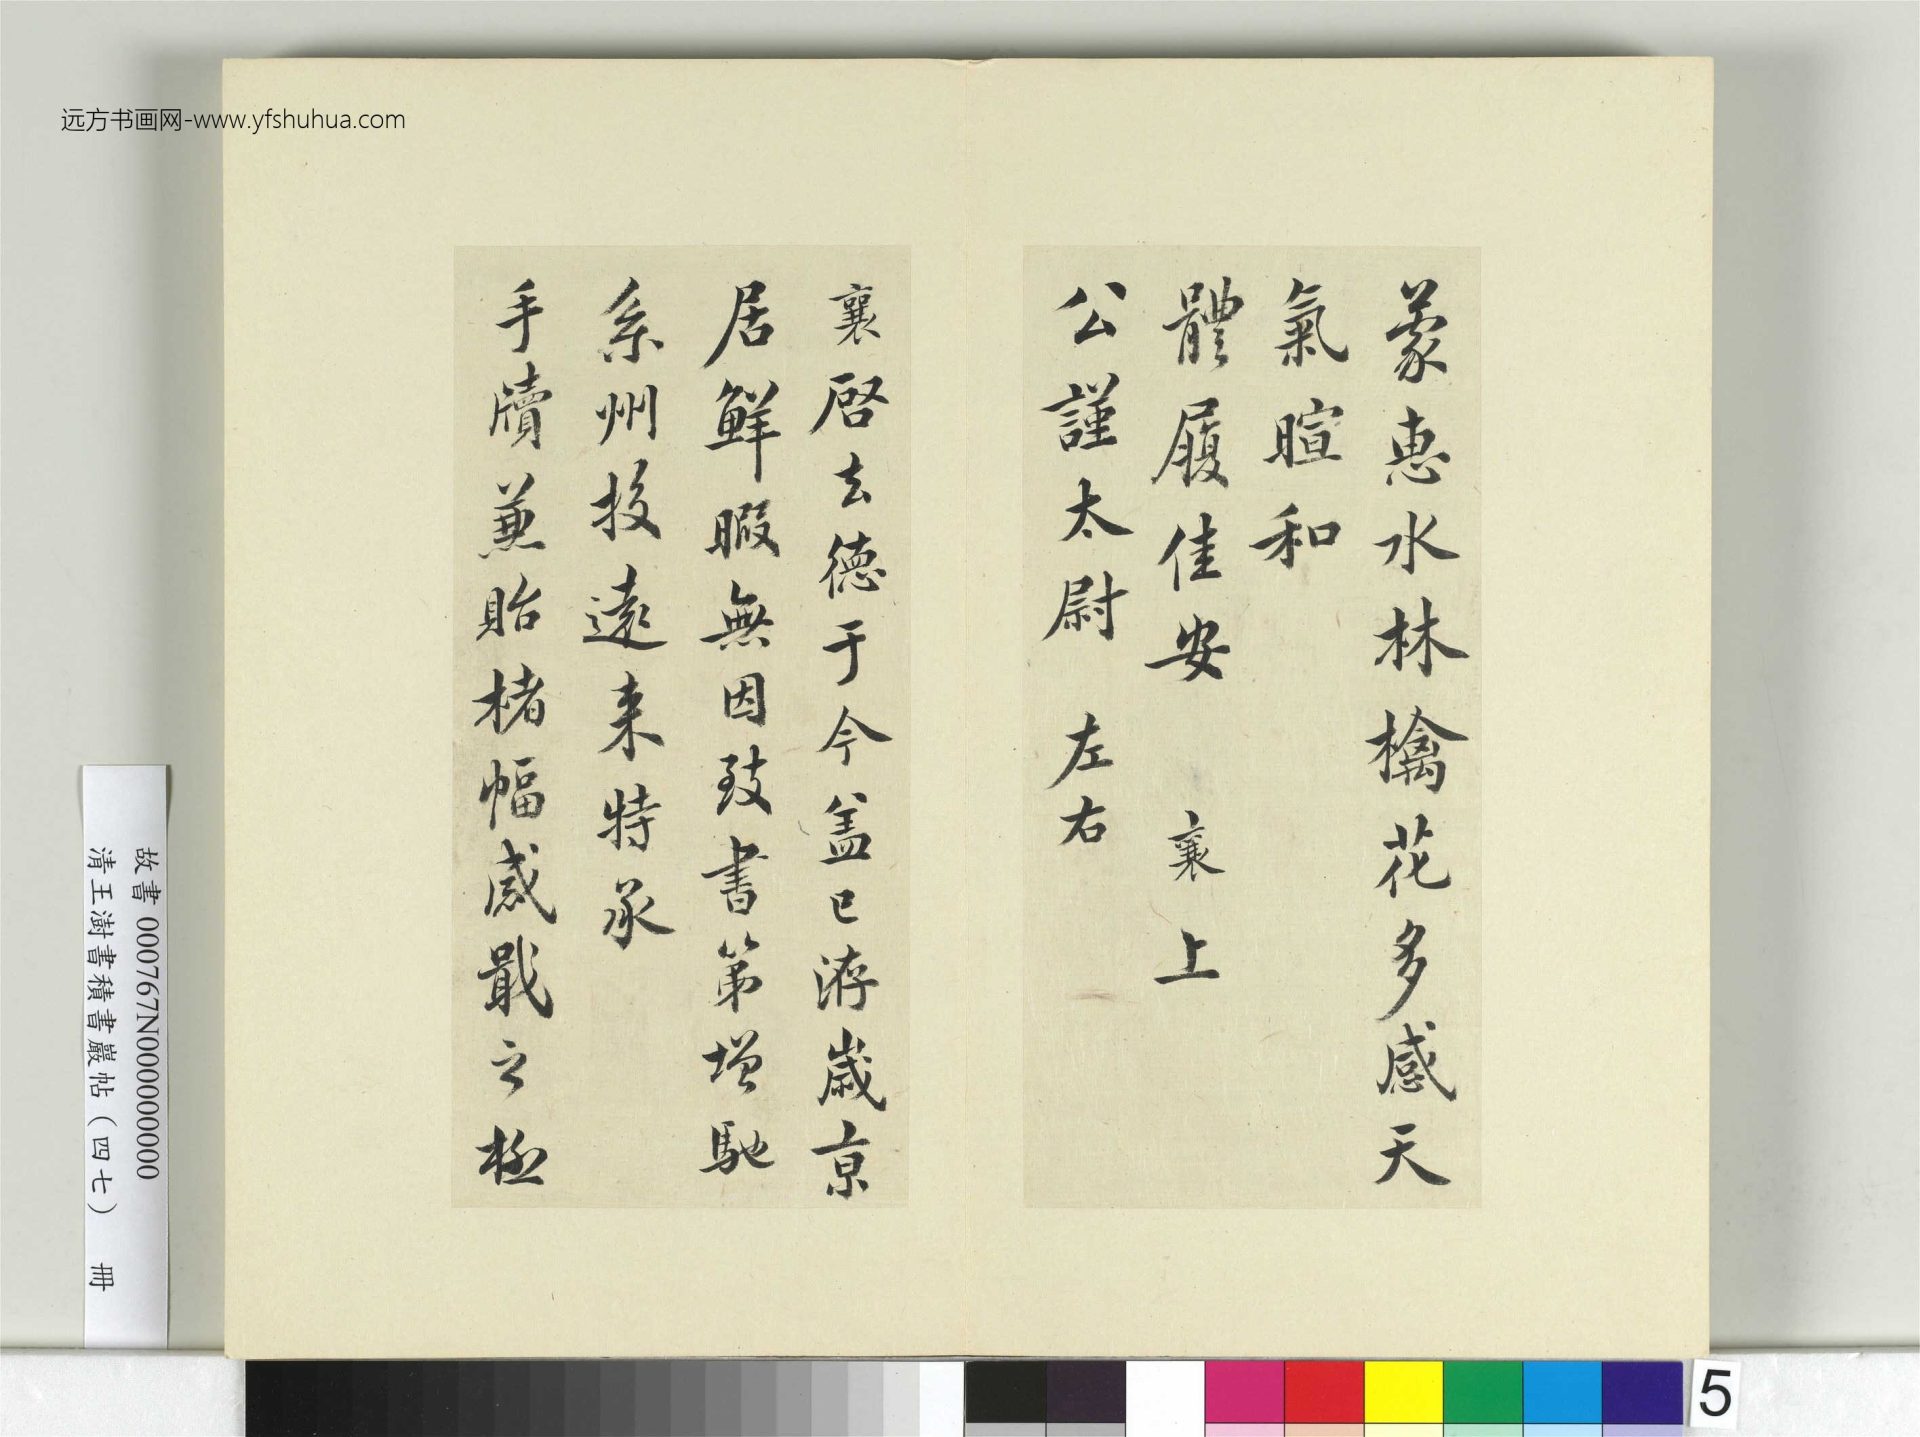 远方书画网-www.yfshuhua.com
蒙惠水林檎花多感天
氣暄和
體履佳安　襄上
公謹太尉　左右
襄啓去德于今盖已洊歲京
居鮮暇無因致書第增馳
系州投遠来特承
手牘兼貽楮幅感戢之極
故書 000767N000000000
清王澍書積書巖帖（四七）　冊
5